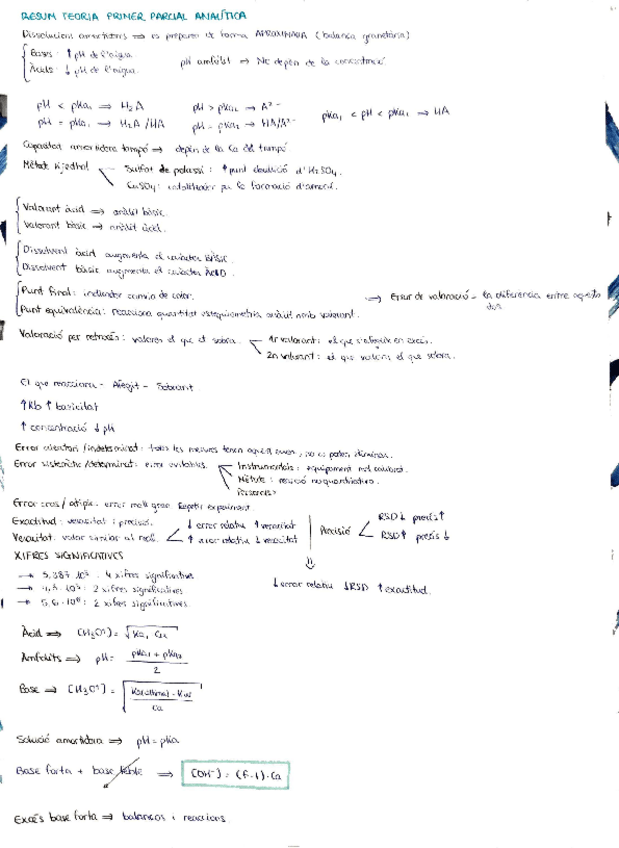 RESUM TEORIA PRIMER PARCIAL ANALÍTICA
Dissolucions amortidores ⇒ es preparen de forma APROXIMADA (balança granetària)
Bases: ↑ pH de l'aigua.
Àcids: ↓ pH de l'aigua.
pH amfòlit ⇒ No depèn de la concentració
pH < pKa1 ⇒ H2A
pH > pKa2 ⇒ A2-
pKa1 < pH < pKa2 ⇒ HA
pH = pKa1 ⇒ H2A/HA
pH = pKa2 ⇒ HA/A2-
Capacitat amortidora tampó ⇒ depèn de la Ca del tampó
Mètode Kjeldhal
Sulfat de potassi: ↑ punt ebullició d'H2SO4.
CuSO4: catalitzador per la formació d'amoni.
Valorant àcid ⇒ anàlit bàsic.
Valorant bàsic → anàlit àcid.
Dissolvent àcid augmenta el caràcter BÀSIC.
Dissolvent bàsic augmenta el caràcter ÀCID.
Punt final: indicador canvia de color.
Punt equivalència: reacciona quantitat estequiometria anàlit amb valorant.
⇒ Error de valoració - la diferència entre aquests dos.
Valoració per retrocés: valores el que et sobra.
1r valorant: el que s'afegeix en excés.
2n valorant: el que valores el que sobra.
El que reacciona = Afegit - Sobrant
↑ Kb ↑ basicitat
↑ concentració ↓ pH
Error aleatori/indeterminat: totes les mesures tenen aquest error, no es poden eliminar.
Error sistemàtic/determinat: error evitables.
Instrumentals: equipament mal calibrat.
Mètode: reacció no quantitativa.
Personals
Error cras/atípic. error molt gran Repetir experiment.
Exactitud: veracitat i precisió.
Veracitat. valor similar al real.
↓ error relatiu ↑ veracitat
↑ error relatiu ↓ veracitat
Precisió
RSD ↓ precís ↑
RSD ↑ precís ↓
⇓
↓ error relatiu ↓ RSD ↑ exactitud.
XIFRES SIGNIFICATIVES
4 xifres significatives
2 xifres significatives
2 xifres significatives
Àcid ⇒ [H3O+] = √Ka1 Ca
Amfòlits ⇒ pH = pKa1 + pKa2 / 2
Base ⇒ [H3O+] =
Solució amortidora ⇒ pH = pKa
Base forta + base feble ⇒ [OH-] = (f-1)·Ca
Excés base forta ⇒ balanços i reaccions